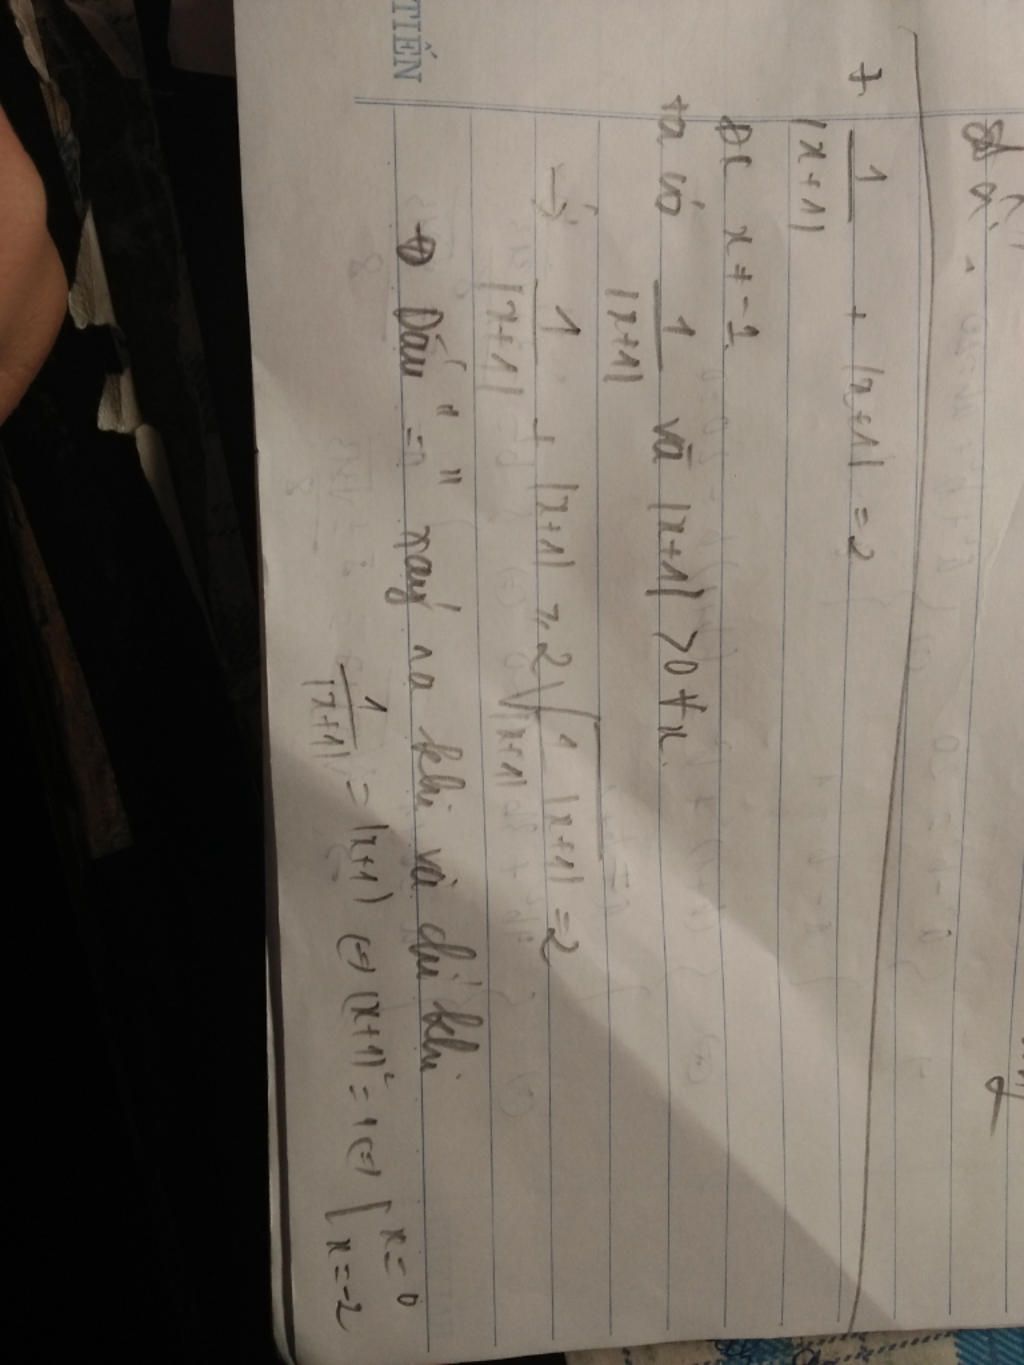 TIẾN
+ 1/|x+1| + |x+1| = 2
ĐK x ≠ -1
ta có 1/|x+1| và |x+1| > 0 ∀x
→ 1/|x+1| + |x+1| ≥ 2√(1/|x+1| . |x+1|) = 2
Dấu "=" xảy ra khi và chỉ khi
1/|x+1| = |x+1| (=) (x+1)² = 1 (=) [ x = 0
x = -2